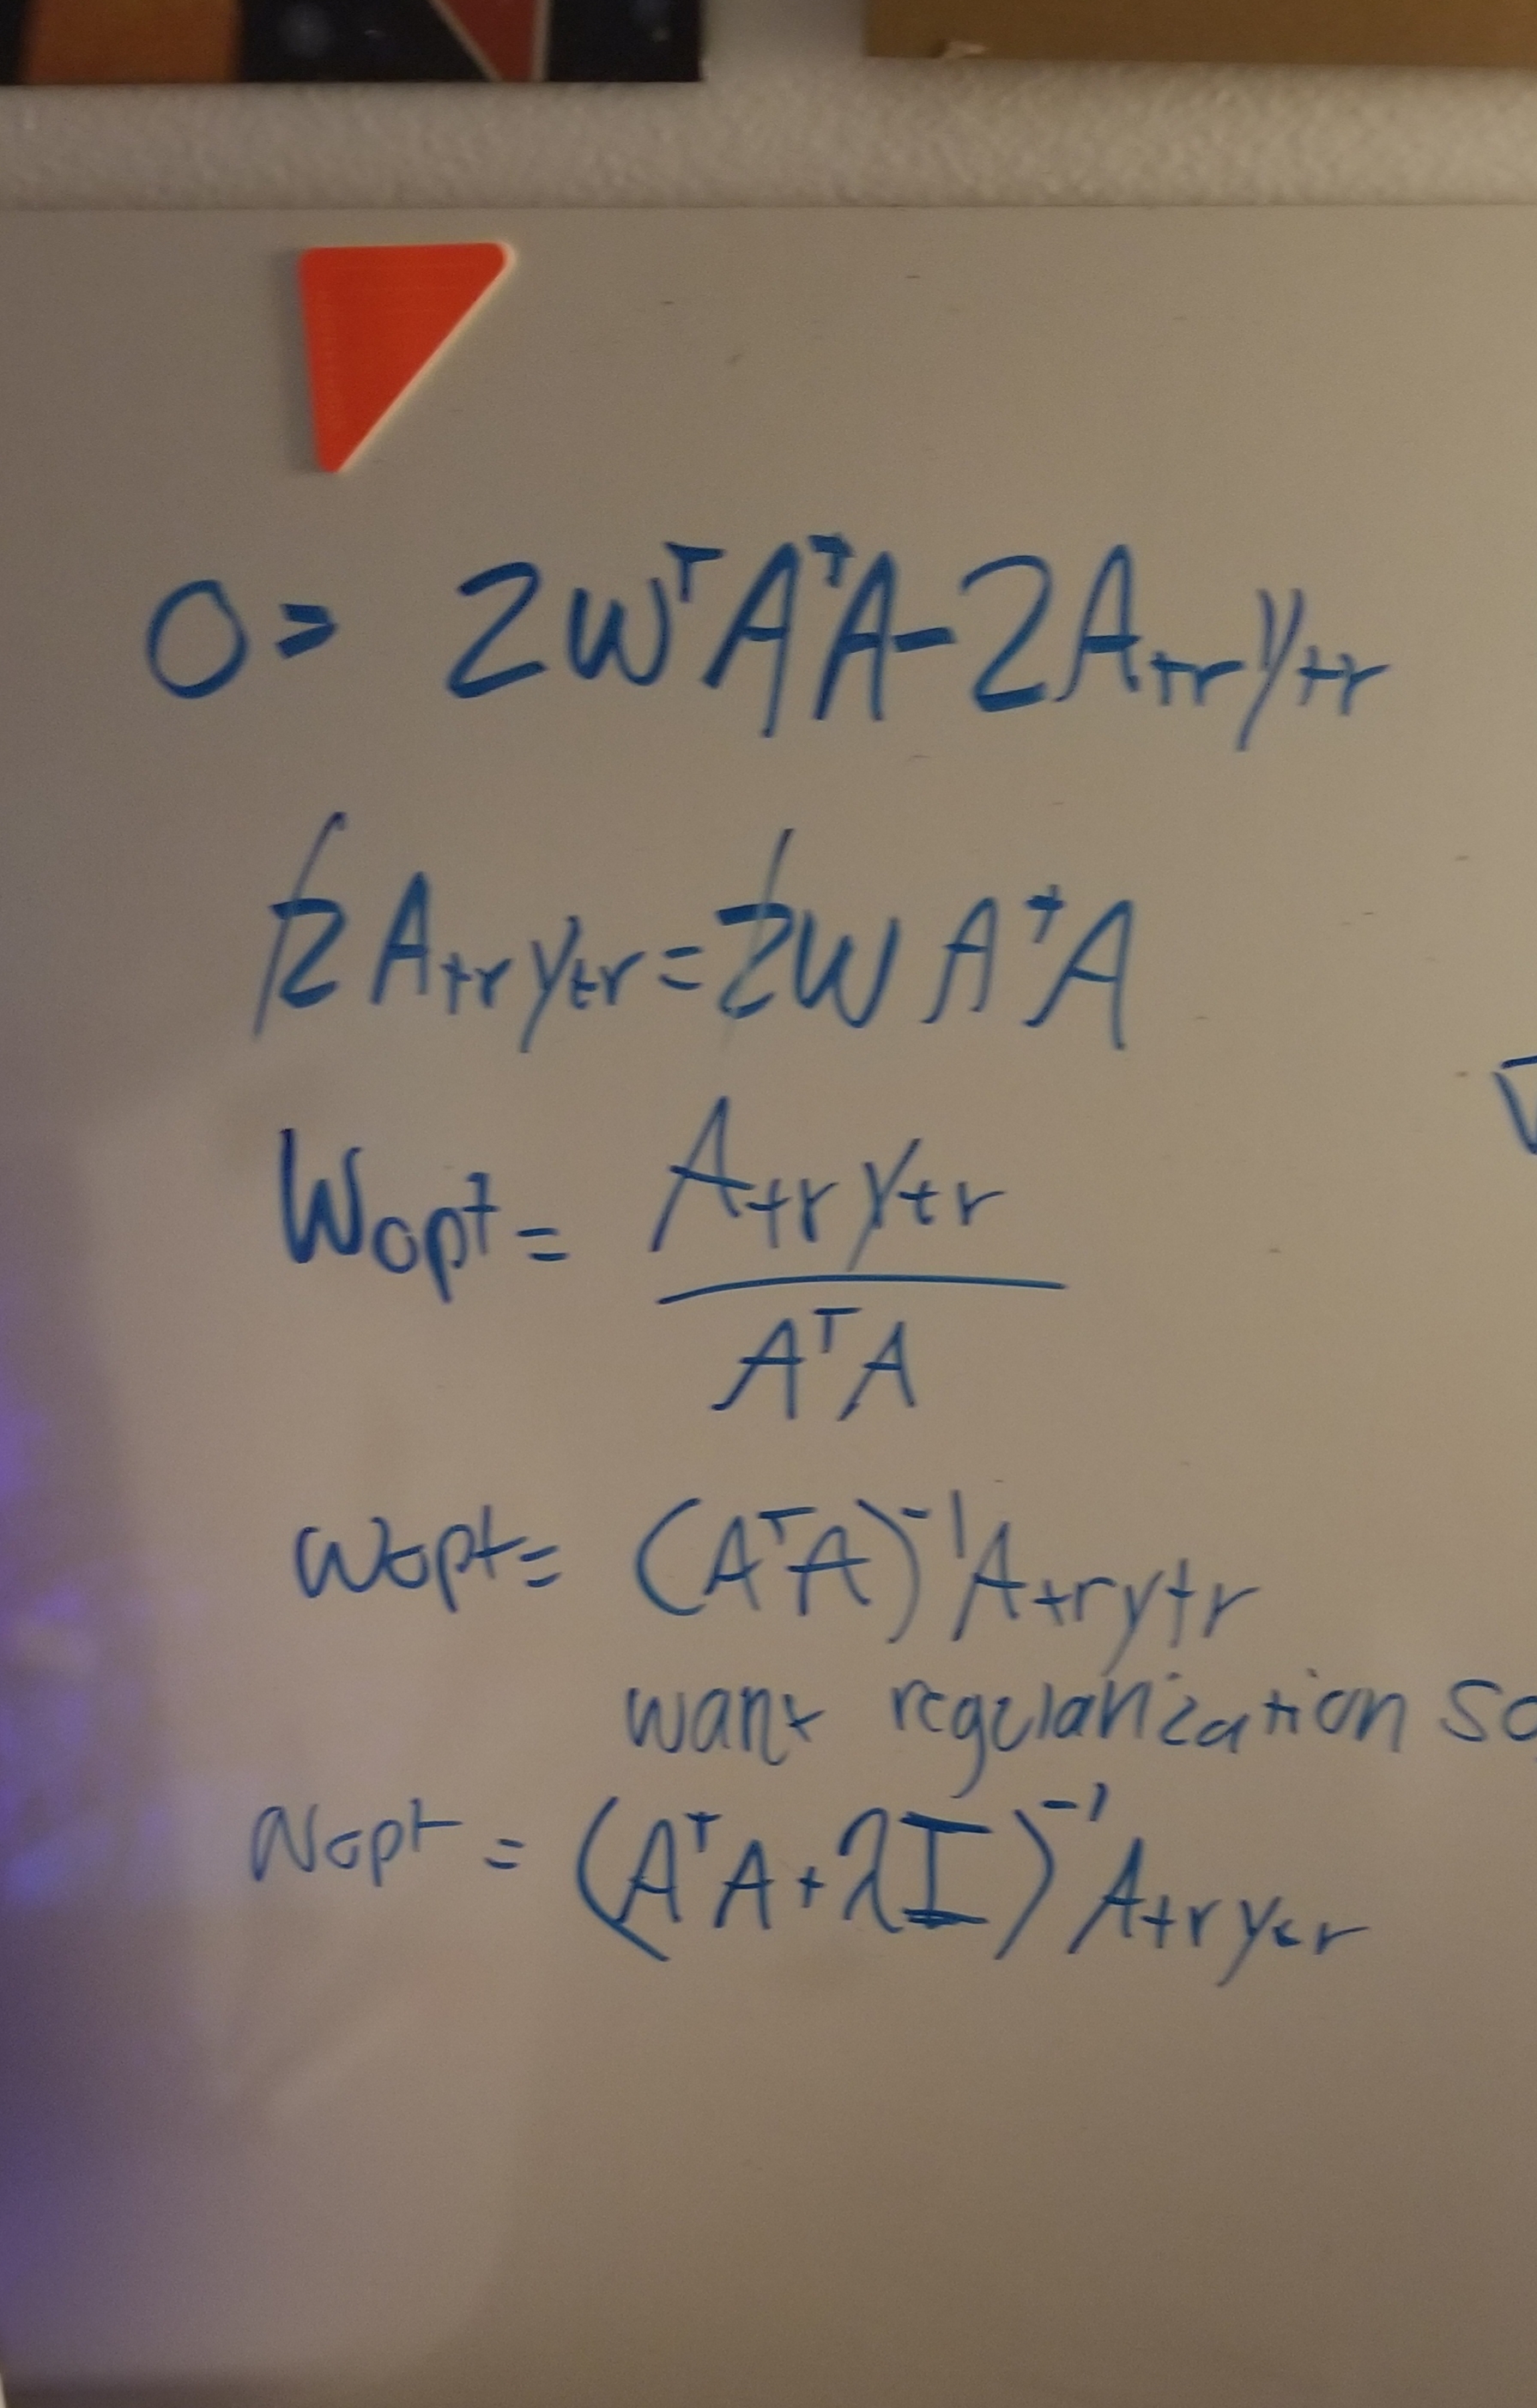 0 = 2wᵀAᵀA - 2A_tr y_tr
2A_tr y_tr = 2w AᵀA
W_opt = A_tr y_tr / AᵀA
w_opt = (AᵀA)⁻¹ A_tr y_tr
want regularization so
w_opt = (AᵀA + λI)⁻¹ A_tr y_tr